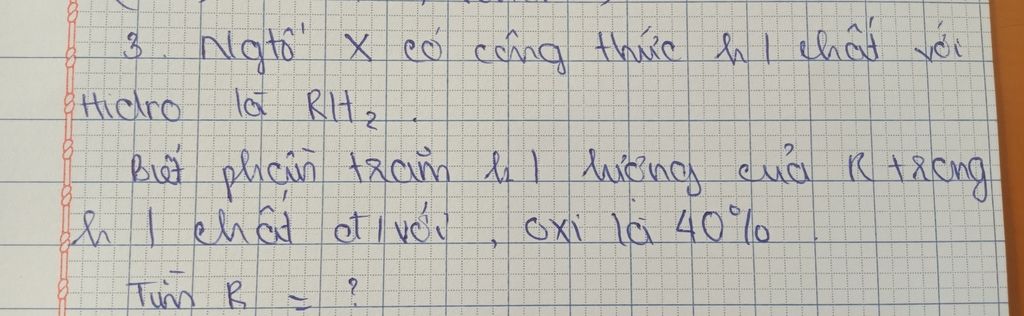 3. Ngtố X có công thức h/chất với
Hidro là RH₂.
Biết phần trăm k/lượng của R trong
h/chất đ/với, oxi là 40%.
Tìm R = ?